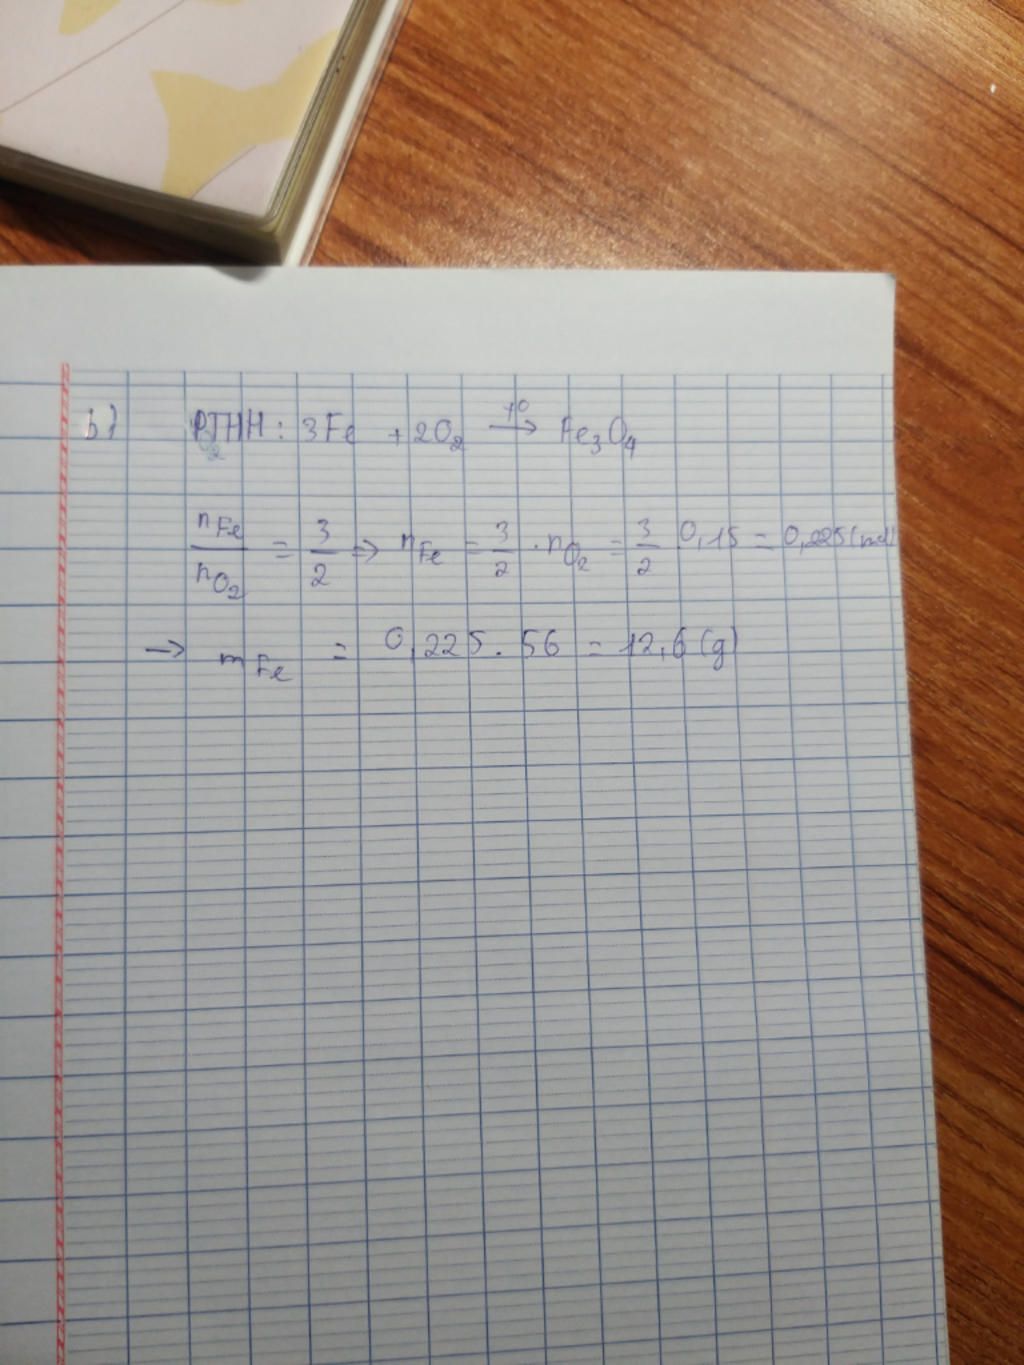 b) PTHH: 3Fe + 2O₂ →(t⁰) Fe₃O₄
n_Fe/n_O₂ = 3/2 => n_Fe = 3/2 . n_O₂ = 3/2 . 0,15 = 0,225 (mol)
→ m_Fe = 0,225 . 56 = 12,6 (g)